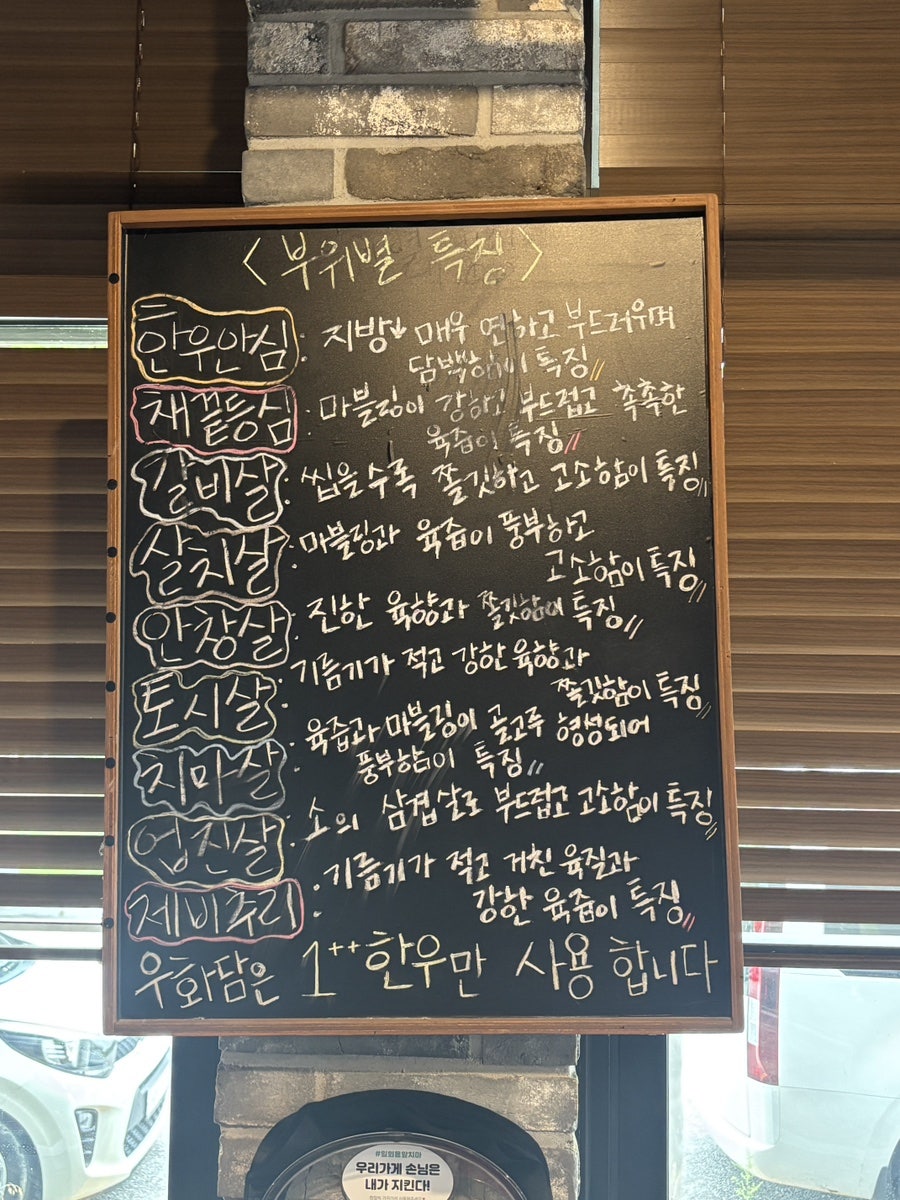 <부위별 특징>
한우안심 : 지방↓ 매우 연하고 부드러우며
담백함이 특징//
채끝등심 : 마블링이 강하고 부드럽고 촉촉한
육즙이 특징//
갈비살 : 씹을수록 쫄깃하고 고소함이 특징//
살치살 : 마블링과 육즙이 풍부하고
고소함이 특징//
안창살 : 진한 육향과 쫄깃함이 특징//
토시살 : 기름기가 적고 강한 육향과
쫄깃함이 특징//
치마살 : 육즙과 마블링이 골고루 형성되어
풍부함이 특징//
업진살 : 소의 삼겹살로 부드럽고 고소함이 특징//
제비추리 : 기름기가 적고 거친 육질과
강한 육즙이 특징//
우화담은 1++한우만 사용합니다
우리가게 손님은
내가 지킨다!